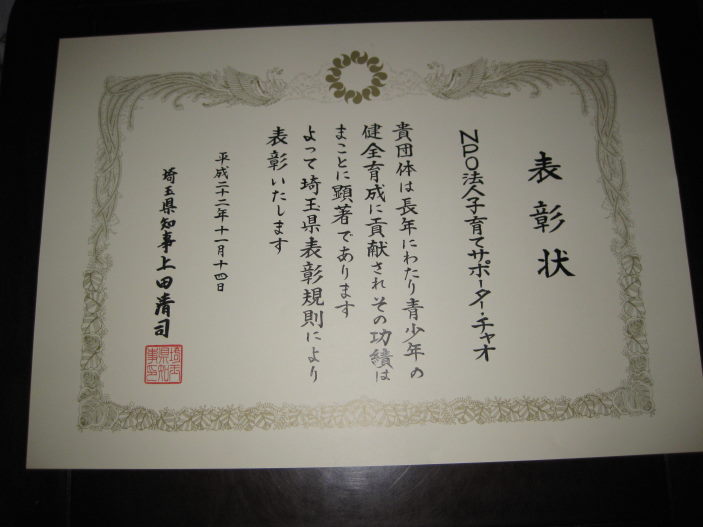 表彰状
NPO法人子育てサポーター・チャオ
貴団体は長年にわたり青少年の
健全育成に貢献されその功績は
まことに顕著であります
よって埼玉県表彰規則により
表彰いたします
平成二十二年十一月十四日
埼玉県知事上田清司
埼玉県知事印